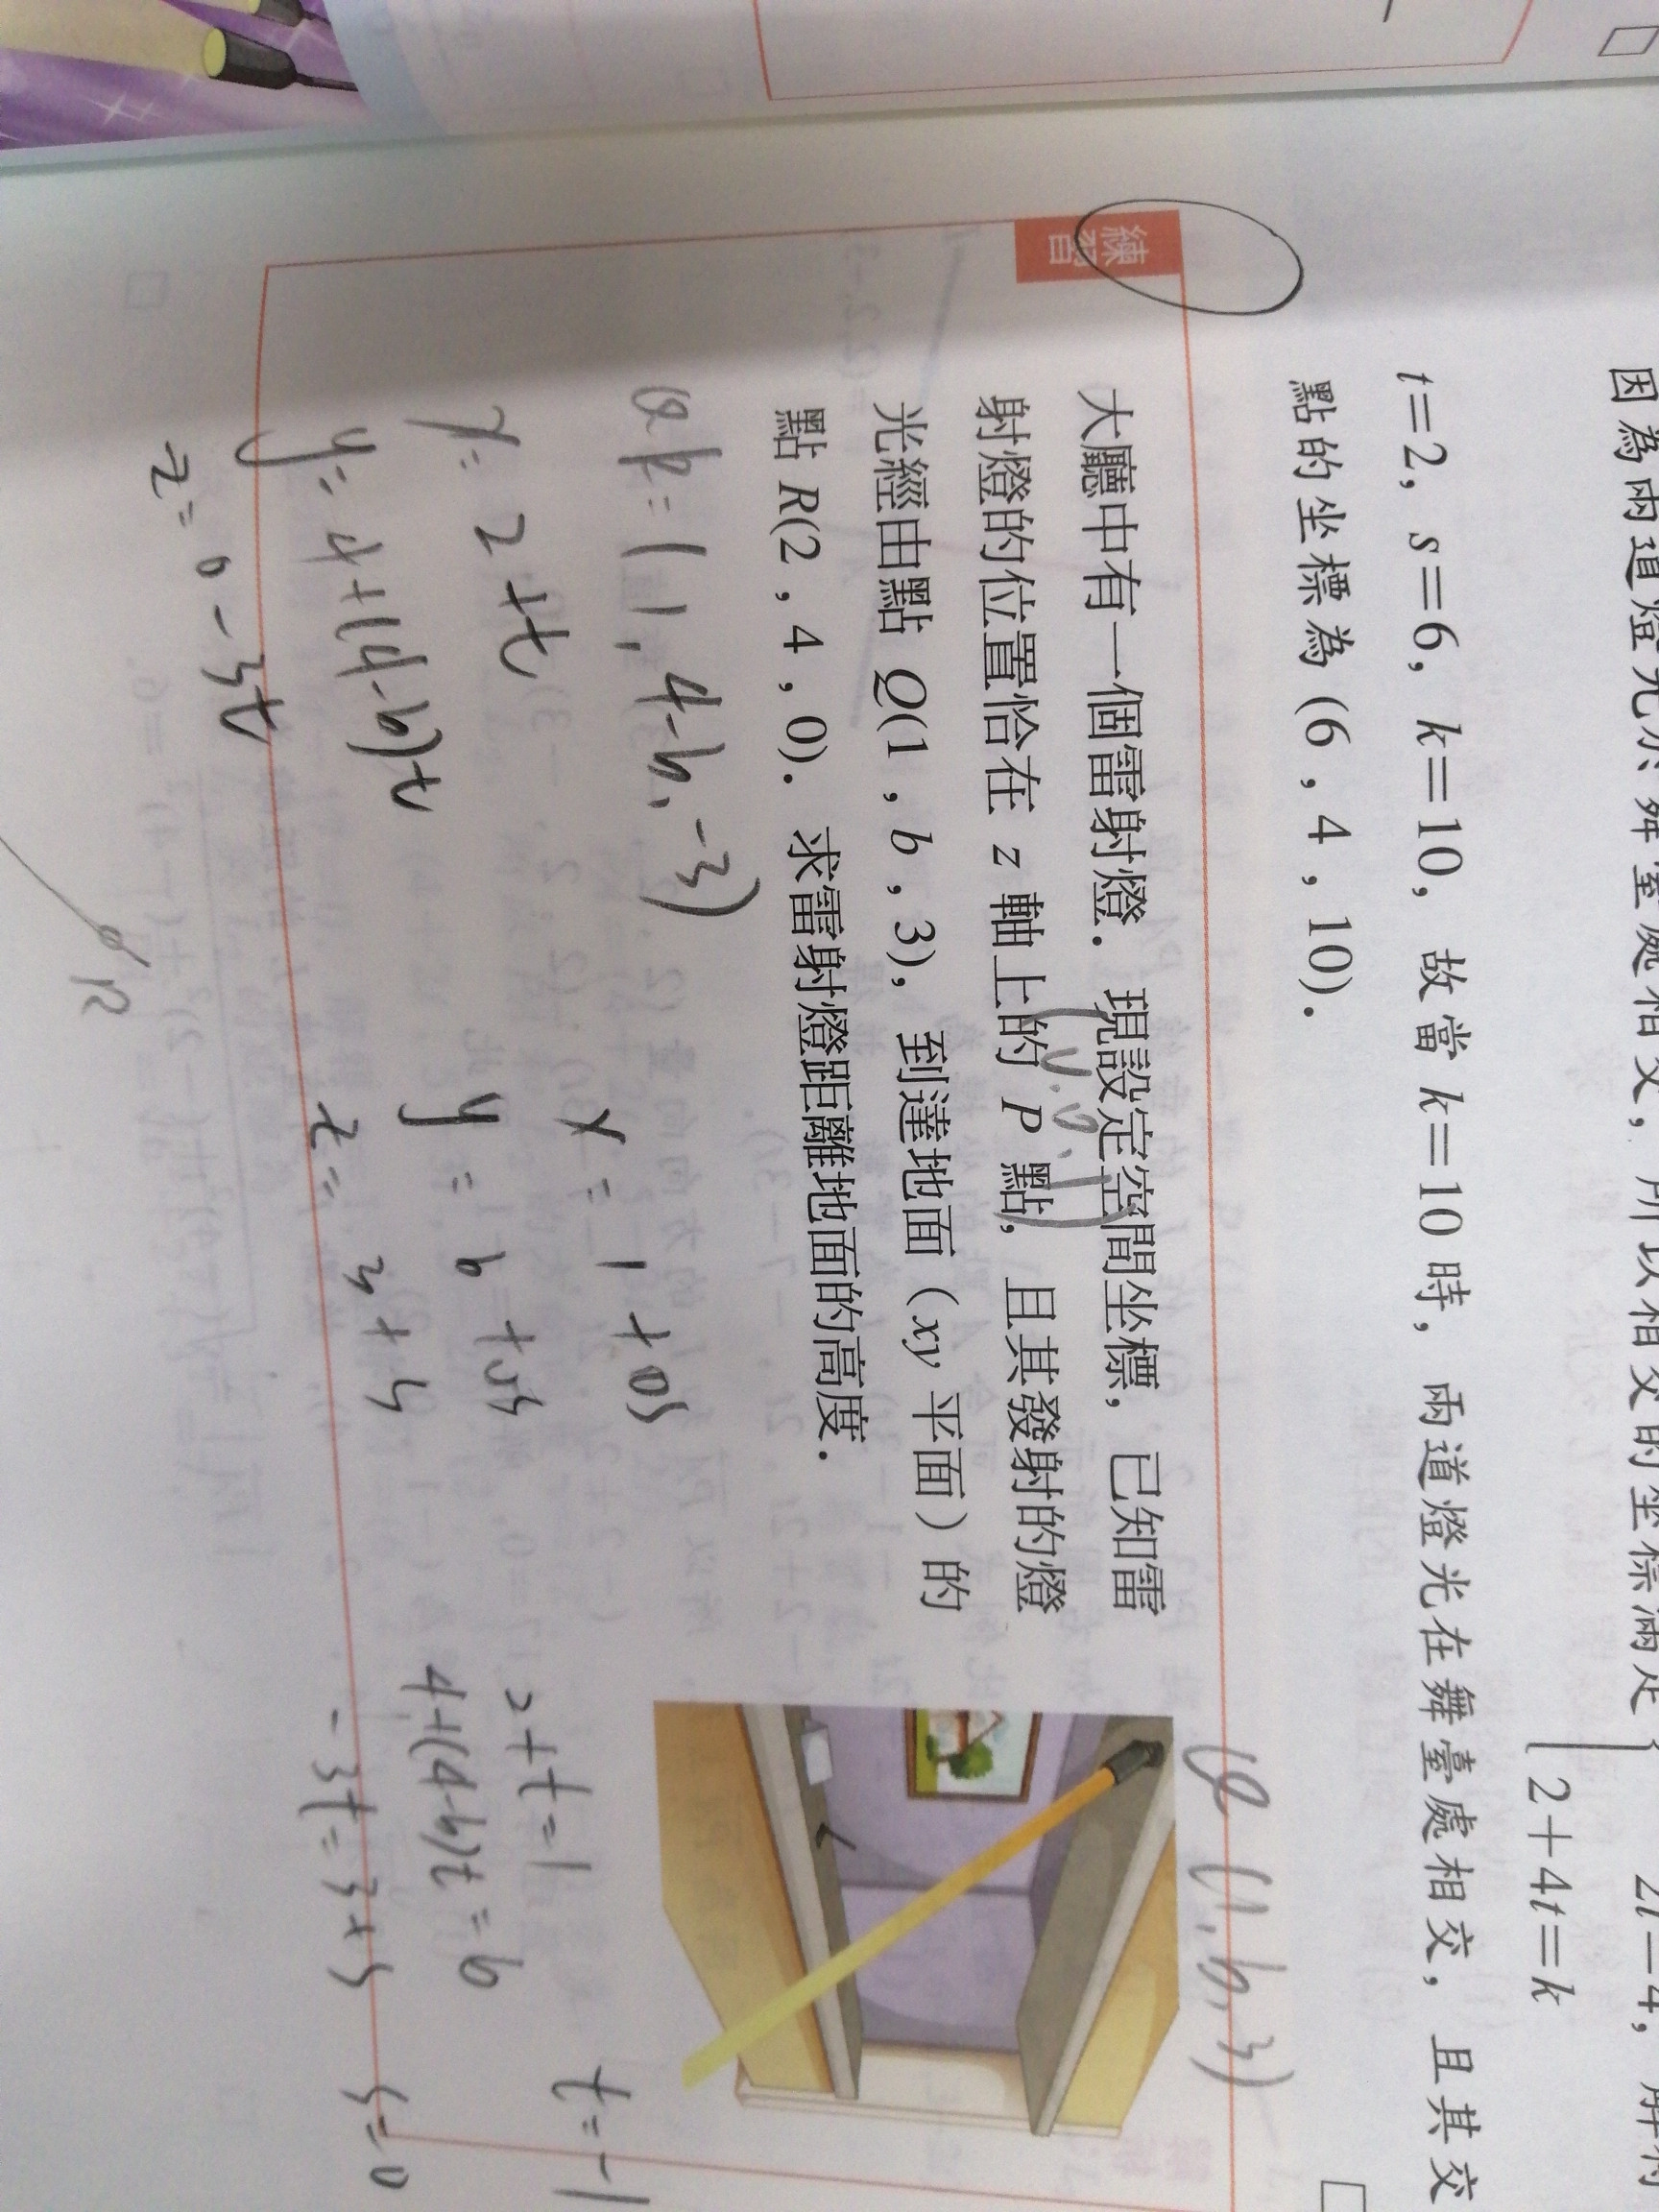 t=2, s=6, k=10, 故當 k=10 時, 兩道燈光在舞臺處相交, 且其交
點的坐標為 (6 , 4 , 10).
2+4t=k
練習
大廳中有一個雷射燈. 現設定空間坐標, 已知雷
射燈的位置恰在 z 軸上的 P 點, 且其發射的燈
光經由點 Q(1 , b , 3), 到達地面 ( xy 平面 ) 的
點 R(2 , 4 , 0). 求雷射燈距離地面的高度.
Q (1, b, 3)
QR = (1, 4-b, -3)
x = 2+t
y = 4+(4-b)t
z = 0-3t
x = 1+0s
y = b+s
z = 3+s
2+t=1
4+(4-b)t=b
-3t=3+s
t=-1
s=0